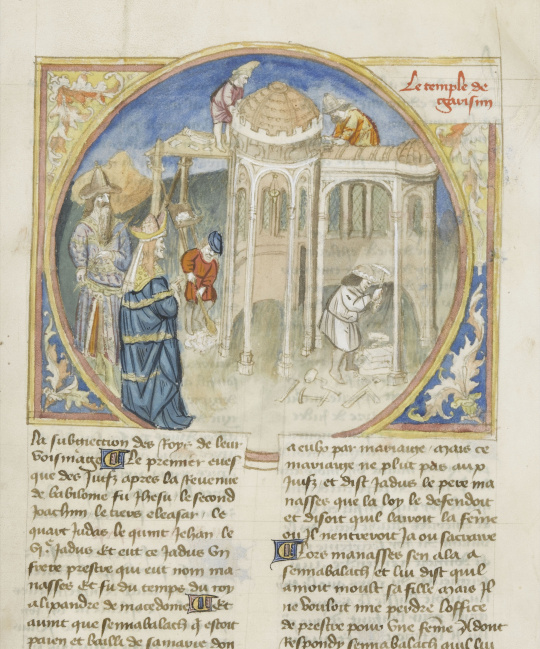 Le temple de
garisim
la subiection des Roys de leur
voisinage Le premier eues
que des Juifz apres la Reuenue
de babilone fu Jhesu le second
Joachim le tiers eleasar le
quart Judas le quint Jehan le
Jadus Et eut ce Jadus Un
frere prestre qui eut nom ma
nasses Et fu du temps du roy
alixandre de macedome Et
auint que sennabalach q estoit
paien et baille de samarie don
a eulz par mariaige mais ce
mariaige ne plut pas aux
Juifz et dist Jadus le pere ma
nasses que la loy le defendoit
et disoit quil lairoit la feme
ou Il nentreroit Ja ou sacraire
Lors manasses sen ala a
sennabalach et luy dist quil
amoit moult sa fille mais Il
ne vouloit mie perdre loffice
de prestre pour Une feme Adont
Respondy sennabalach quil luy